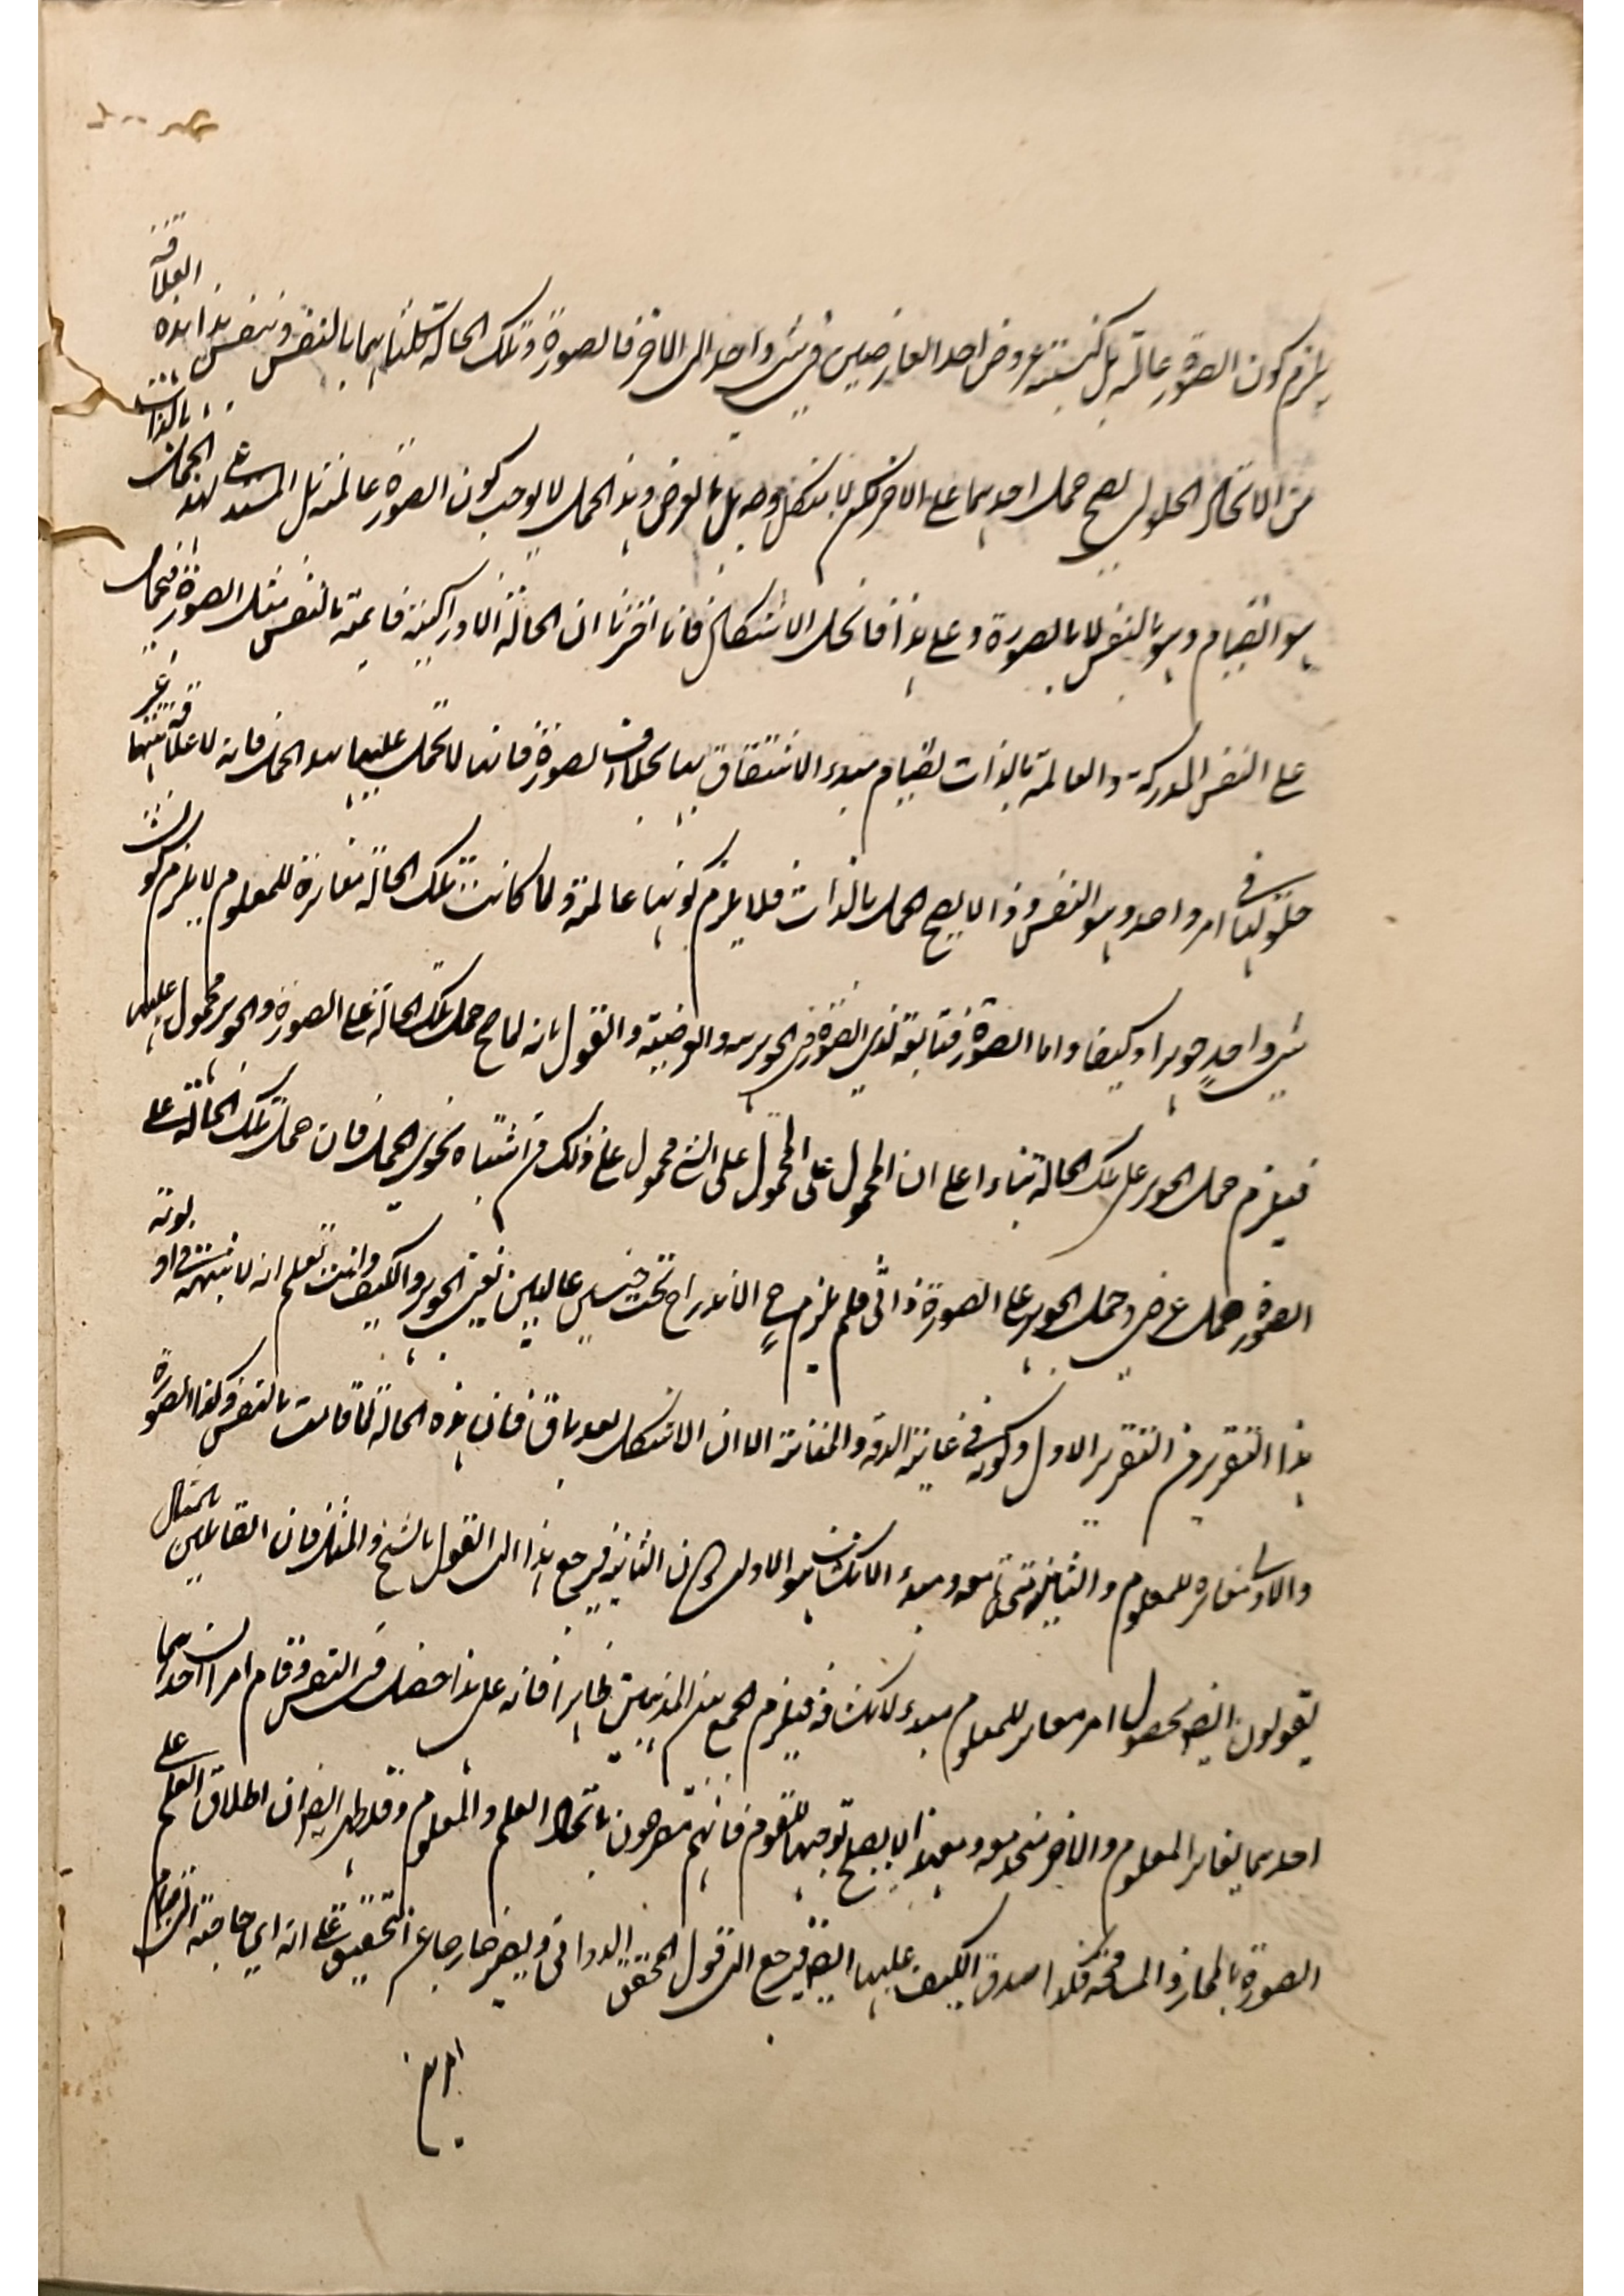 يلزم كون الصورة عالمة بل كنسبة عروض احد العارضين في شئ واحد الى الاخر فالصورة وتلك الحالة كلتاهما بالنفس وبنفس هذا هذه العلاقة
من الاتحاد الحلولي يصح حمل احدهما على الاخر لكن لا بالذات بل بالعرض وهذا الحمل لا يوجب كون الصورة عالمة بل المستدعي لهذا الحمل بالذات
هو القيام وهو بالنفس لا بالصورة وعلى هذا فانحل الاشكال فانا اخترنا ان الحالة الادراكية قائمة بالنفس مثل الصورة فتحمل
على النفس المدركة والعالمة بالذات لقيام مبدء الاشتقاق بها بخلاف الصورة فانها لا تحمل عليها هذا الحمل فانه لا علاقة بينها غير
حلولها في امر واحد وهو النفس وذا لا يصح الحمل بالذات فلا يلزم كونها عالمة ولما كانت تلك الحالة مغائرة للمعلوم لا يلزم كون
شئ واحد جوهرا وكيفا واما الصورة فتابعة لذي الصورة في الجوهرية والعرضية والقول بانه لما صح حمل تلك الحالة على الصورة والجوهر محمول عليها
فيلزم حمل الجوهر على تلك الحالة بناءا على ان المحمول على المحمول على الشئ محمول على ذلك من اشتباه نحوي الحمل فان حمل تلك الحالة على
الصورة حمل عرضي وحمل الجوهر على الصورة ذاتي فلم يلزم ح الاندراج تحت جنسين عاليين نعني الجوهر والكيف وانت تعلم انه لا شبهة في اولوية
هذا التقرير من التقرير الاول وكونه في غاية الدقة والمتانة الا ان الاشكال بعد باق فان هذه الحالة لما قامت بالنفس وكذا الصورة
والاولى مغايرة للمعلوم والثانية متحدة معه ومبدء الانكشاف هو الاولى دون الثانية فيرجع هذا الى القول بالشبح والمثال فان القائلين بالمثال
يقولون ايضا بحصول امر مغاير للمعلوم مبدء لانكشافه فيلزم الجمع بين المذهبين ظاهرا فانه على هذا حصل في النفس وقام امران احدهما
احدهما يغاير المعلوم والاخر متحد معه ومع هذا لا يصلح توجيها لكلام القوم فانهم مصرحون باتحاد العلم والمعلوم وقد ظهر ايضا ان اطلاق العلم على
الصورة بالمجاز والمسامحة فكذا صدق الكيف عليها ايضا فيرجع الى قول المحقق الدواني ويصير خارجا عن التحقيق على انه اي حاجة الى انضمام